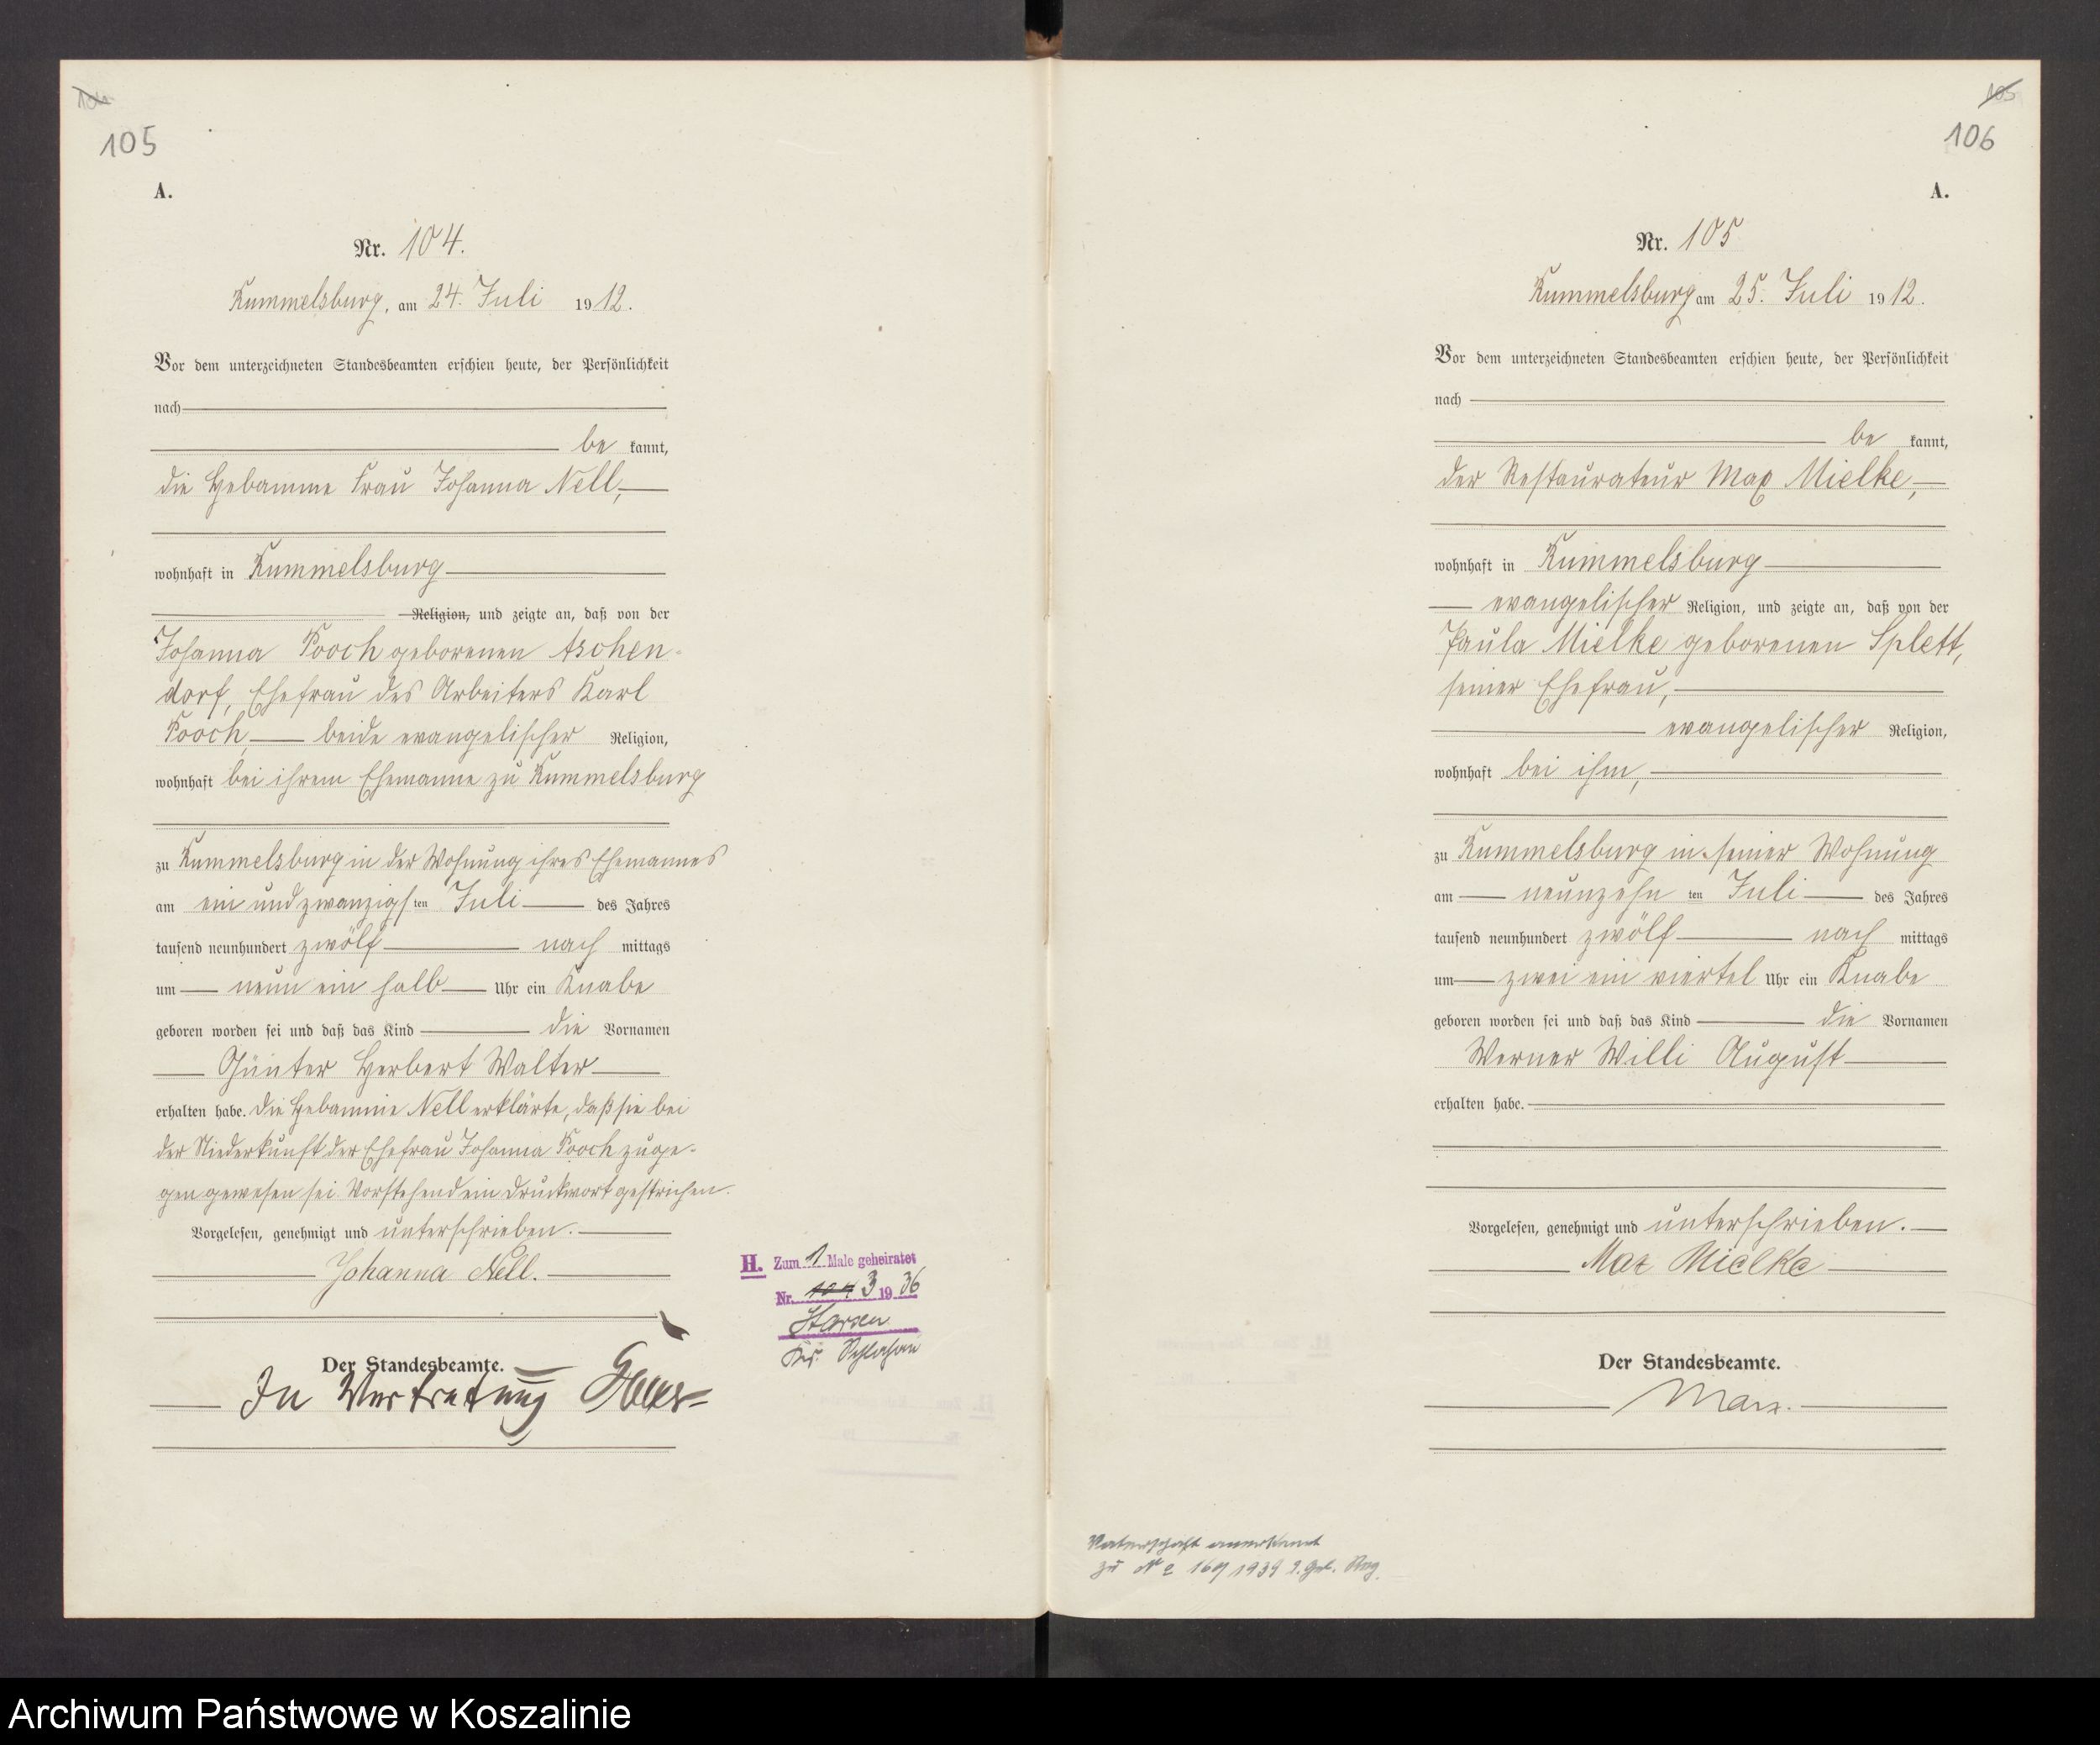 105
A.
Nr. 104.
Rummelsburg, am 24. Juli 1912.
Vor dem unterzeichneten Standesbeamten erschien heute, der Persönlichkeit
nach
be kannt,
die Hebamme Frau Johanna Nell,
wohnhaft in Rummelsburg
Religion, und zeigte an, daß von der
Johanna Pooch geborenen Aschen-
dorf, Ehefrau des Arbeiters Karl
Pooch, beide evangelischer Religion,
wohnhaft bei ihrem Ehemanne zu Rummelsburg
zu Rummelsburg in der Wohnung ihres Ehemannes
am ein und zwanzigsten Juli des Jahres
tausend neunhundert zwölf nach mittags
um neun ein halb Uhr ein Knabe
geboren worden sei und daß das Kind die Vornamen
Günter Herbert Walter
erhalten habe. Die Hebamme Nell erklärte, daß sie bei
der Niederkunft der Ehefrau Johanna Pooch zuge-
gen gewesen sei. Vorstehend ein Druckwort gestrichen.
Vorgelesen, genehmigt und unterschrieben.
Johanna Nell.
Der Standesbeamte.
In Vertretung
H. Zum 1 Male geheiratet
Nr. 104 3 1936
Starsen
Krs. Schlochau
105
106
A.
Nr. 105
Rummelsburg am 25. Juli 1912.
Vor dem unterzeichneten Standesbeamten erschien heute, der Persönlichkeit
nach
be kannt,
der Restaurateur Max Mielke,
wohnhaft in Rummelsburg
evangelischer Religion, und zeigte an, daß von der
Paula Mielke geborenen Splett,
seiner Ehefrau,
evangelischer Religion,
wohnhaft bei ihm,
zu Rummelsburg in seiner Wohnung
am neunzehn ten Juli des Jahres
tausend neunhundert zwölf nach mittags
um zwei ein viertel Uhr ein Knabe
geboren worden sei und daß das Kind die Vornamen
Werner Willi August
erhalten habe.
Vorgelesen, genehmigt und unterschrieben.
Max Mielke
Der Standesbeamte.
Marx.
Vaterschaft anerkannt
zu 1939 Geb. Reg.
Archiwum Państwowe w Koszalinie